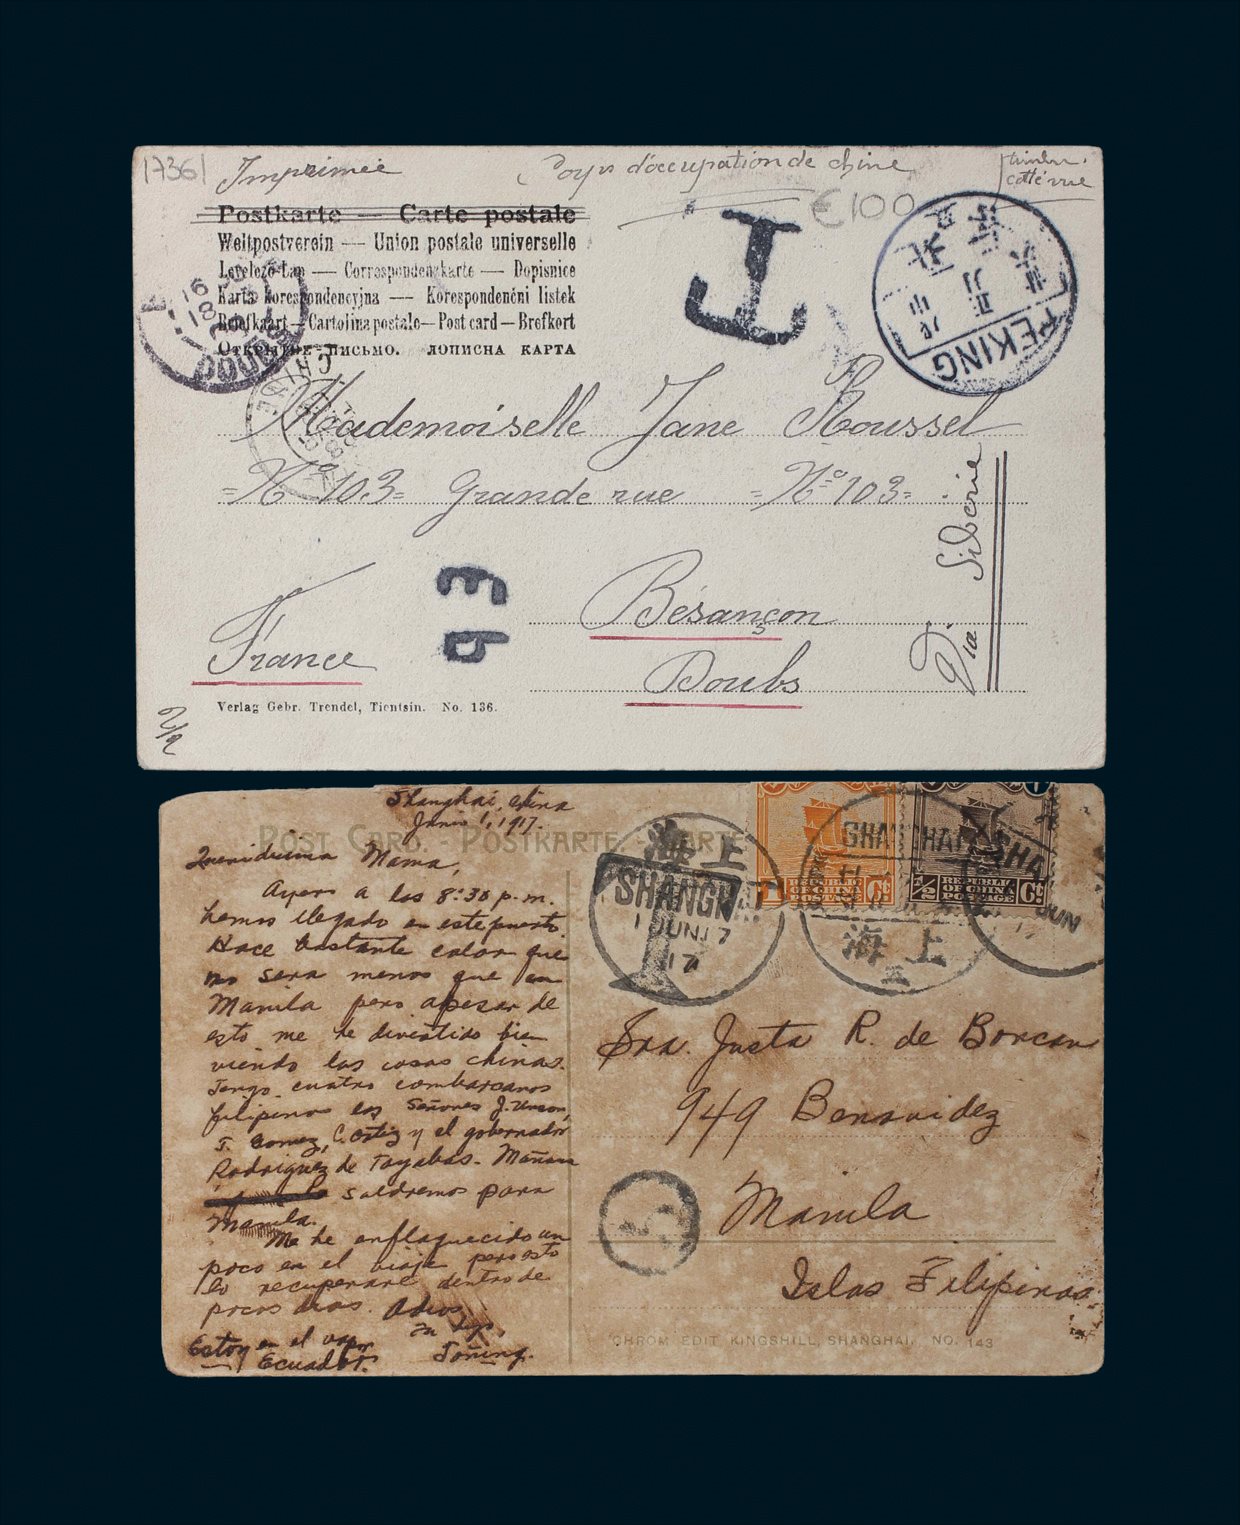 17361
Imprimée
Pays d'occupation de chine
timbre
coté vue
€100
Postkarte — Carte postale
Weltpostverein — Union postale universelle
Levelező-Lap — Correspondenzkarte — Dopisnice
Karta korespondencyjna — Korespondenční listek
Briefkaart — Cartolina postale — Post card — Brefkort
Открытое письмо. Дописна карта
T
PEKING
DOUBS
Mademoiselle Jane Roussel
=No 103= Grande rue =No 103=
Besançon
Doubs
France
Via Siberie
Verlag Gebr. Trendel, Tientsin. No. 136.
Shanghai, China
Junio 1, 1917.
POST CARD. - POSTKARTE. - CARTE
Queridisima Mama,
Ayer a las 8:30 p.m.
hemos llegado en este puerto.
Hace bastante calor que
no sera menos que en
Manila pero apesar de
esto me he divertido bien
viendo las cosas chinas.
Tengo cuatro combarcanos
filipinos los Señores J. Unson,
T. Gomez, C. Ortiz y el gobernador
Rodriguez de Tayabas. Mañana
saldremos para
Manila.
Me he enflaquecido un
poco en el viaje pero esto
lo recuperare dentro de
pocos dias. Adios,
Tu hijo,
Estoy en el vapor
Ecuador.
海上
SHANGHAI
1 JUN 17
17
T
1 REPUBLIC OF CHINA POSTAGE Ct
1/2 REPUBLIC OF CHINA POSTAGE Ct
SHANGHAI
海上
SHA
JUN
Sra. Justa R. de Borcan
949 Benavidez
Manila
Islas Filipinas.
5
CHROM EDIT KINGSHILL, SHANGHAI. NO. 143